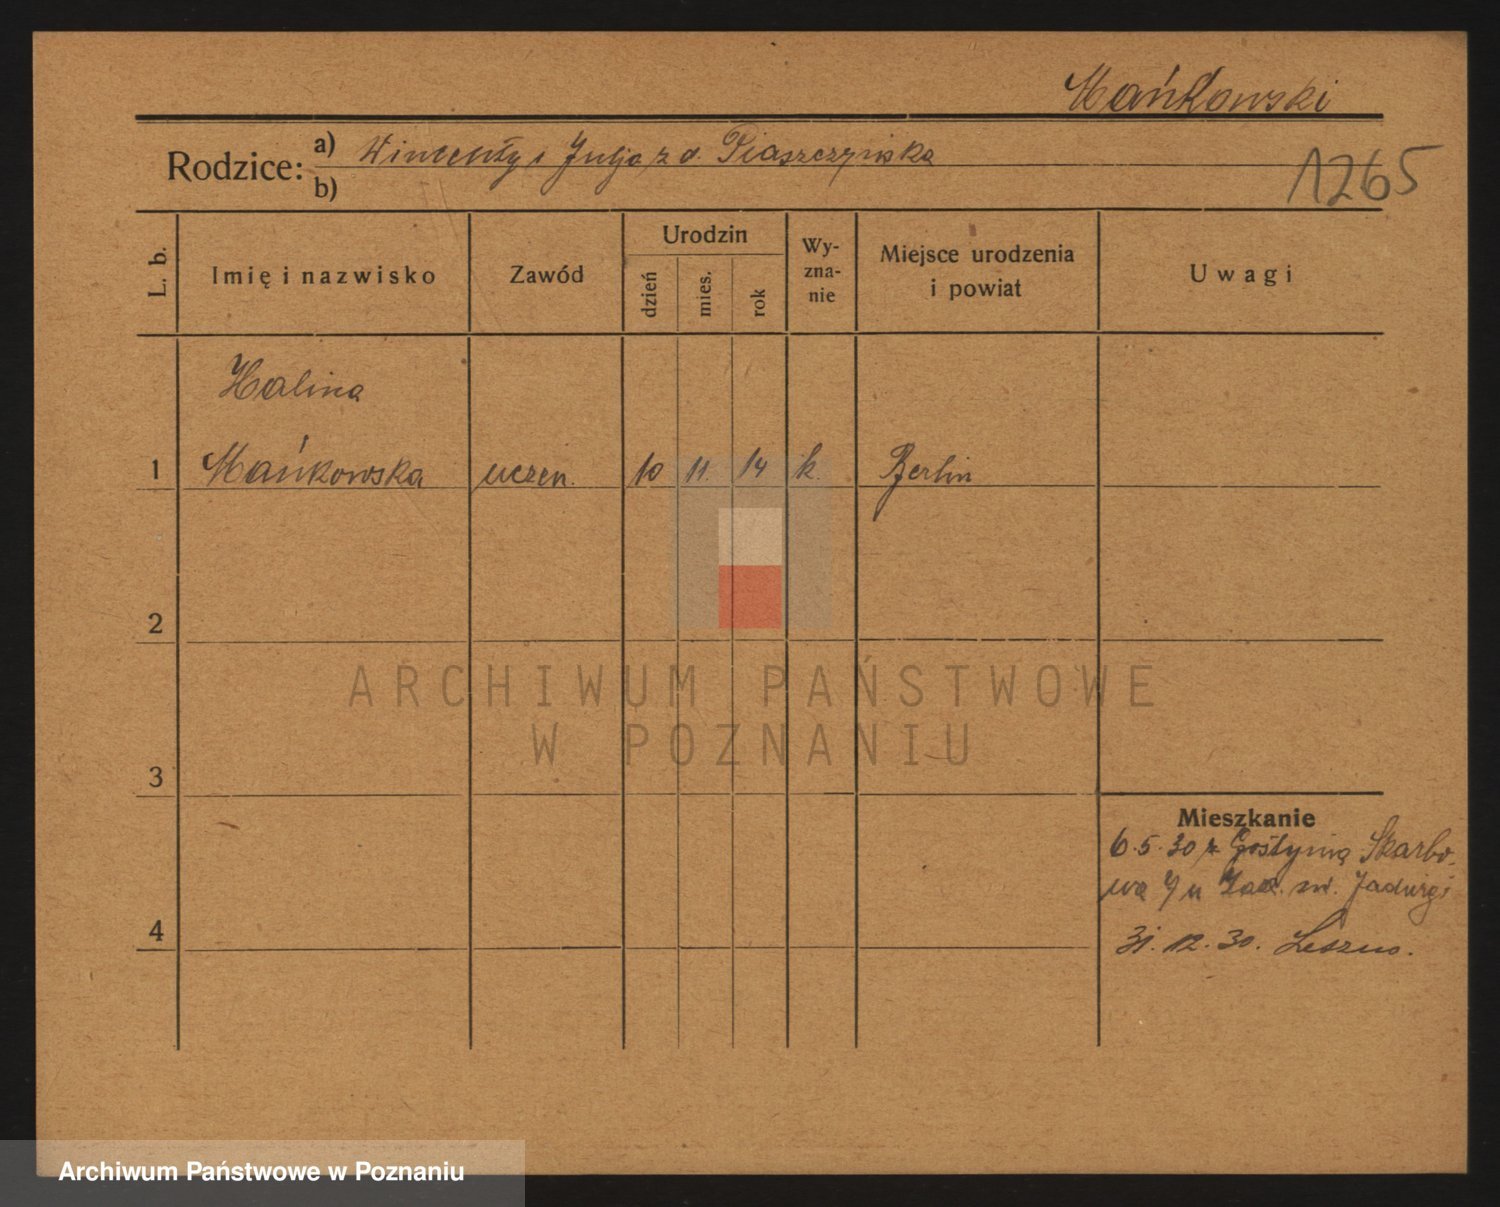 Mańkowski
Rodzice: a) Wincenty i Julja z d. Piaszczyńska
b)
1265
L. b.
Imię i nazwisko
Zawód
Urodzin
dzień
mies.
rok
Wy-
zna-
nie
Miejsce urodzenia
i powiat
Uwagi
Halina
1 Mańkowska uczen. 10 11. 14 k. Berlin
2
3
4
Mieszkanie
6.5.30 z Gostynia Skarbo-
wa 9 u Zak. św. Jadwigi
31.12.30. Leszno.
ARCHIWUM PAŃSTWOWE
W POZNANIU
Archiwum Państwowe w Poznaniu